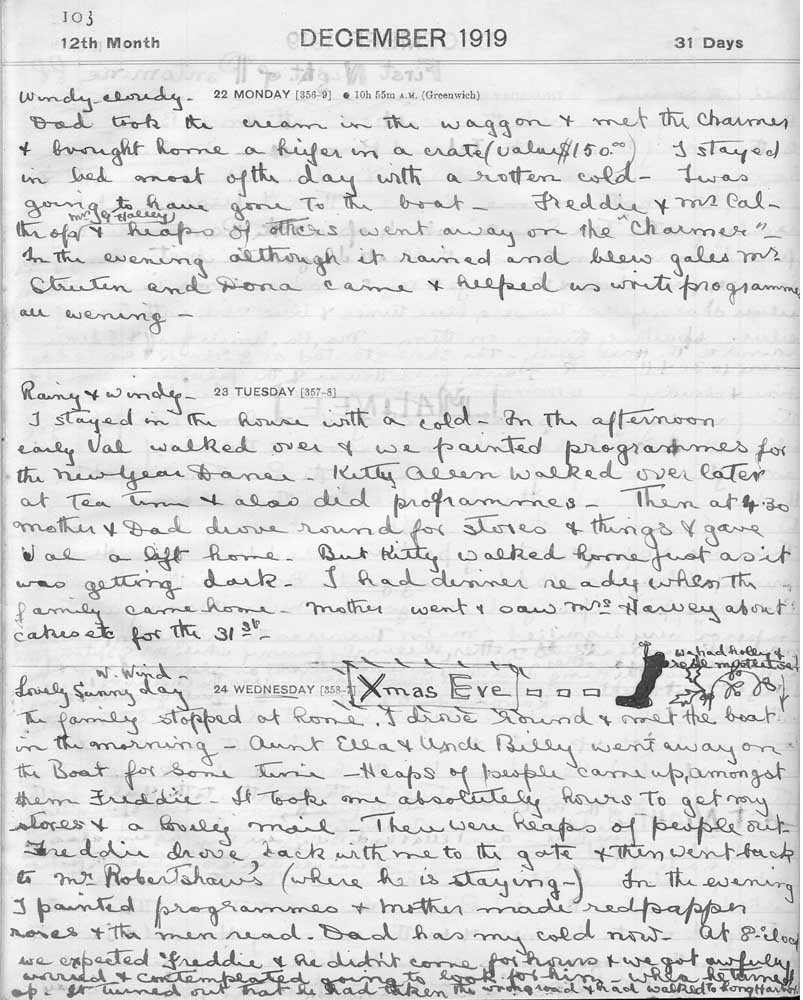 103
12th Month DECEMBER 1919 31 Days
Windy cloudy - 22 MONDAY [356-9] ● 10h 55m A.M. (Greenwich)
Dad took the cream in the waggon & met the Charmer
& brought home a heifer in a crate (value $150.00) I stayed
in bed most of the day with a rotten cold - I was
going to have gone to the boat - Freddie & Mr Cal-
throp & heaps of others went away on the "Charmer" -
In the evening although it rained and blew gales Mrs
and Dora came & helped us write programmes
all evening -
Rainy & windy - 23 TUESDAY [357-8]
I stayed in the house with a cold - In the afternoon
early Val walked over & we painted programmes for
the New Year Dance - Kitty walked over later
at Tea time & also did programmes - Then at 4.30
Mother & Dad drove round for stores & things & gave
Val a lift home. But Kitty walked home just as it
was getting dark - I had dinner ready when the
family came home - Mother went & saw Mrs Harvey about
cakes etc for the 31st -
W. Wind -
we had holly &
real mistletoe
Lovely Sunny day 24 WEDNESDAY [358-7] Xmas Eve
the family stopped at home. I drove round & met the boat
in the morning - Aunt Ella & Uncle Billy went away on
the Boat for some time - Heaps of people came up, amongst
them Freddie - It took me absolutely hours to get my
stores & a lovely mail - There were heaps of people out -
Freddie drove back with me to the gate & then went back
to Mr Robertshaw's (where he is staying -) In the evening
I painted programmes & Mother made red papper
roses & the men read. Dad has my cold now - At 8 o'clock
we expected Freddie & he didn't come for hours & we got awfully
worried & contemplated going to look for him - when he turned
up - It turned out that he had taken the wrong road & had walked to Long Harbor